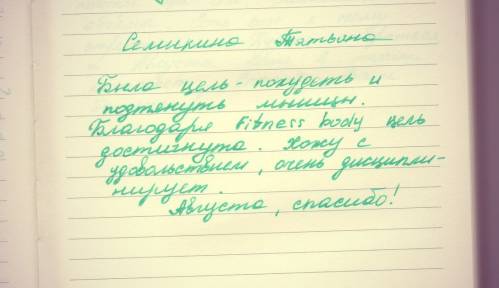 Семикина Татьяна
Была цель - похудеть и
подтянуть мышцы.
Благодаря Fitness body цель
достигнута. Хожу с
удовольствием, очень дисципли-
нирует.
Августа, спасибо!